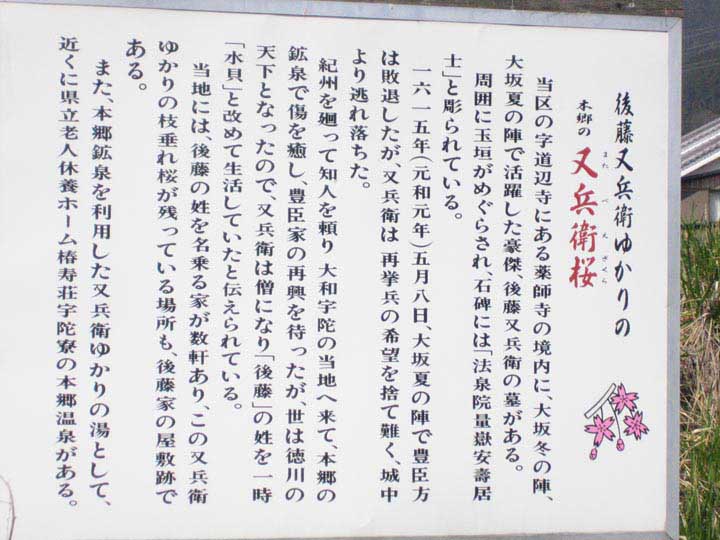 後藤又兵衛ゆかりの
本郷の 又兵衛桜
またべえざくら
当区の字道辺寺にある薬師寺の境内に、大坂冬の陣、
大坂夏の陣で活躍した豪傑、後藤又兵衛の墓がある。
周囲に玉垣がめぐらされ、石碑には「法泉院量嶽安壽居
士」と彫られている。
一六一五年(元和元年)五月八日、大坂夏の陣で豊臣方
は敗退したが、又兵衛は 再挙兵の希望を捨て難く、城中
より逃れ落ちた。
紀州を廻って知人を頼り 大和宇陀の当地へ来て、本郷の
鉱泉で傷を癒し、豊臣家の再興を待ったが、世は徳川の
天下となったので、又兵衛は僧になり「後藤」の姓を一時
「水貝」と改めて生活していたと伝えられている。
当地には、後藤の姓を名乗る家が数軒あり、この又兵衛
ゆかりの枝垂れ桜が残っている場所も、後藤家の屋敷跡で
ある。
また、本郷鉱泉を利用した又兵衛ゆかりの湯として、
近くに県立老人休養ホーム椿寿荘宇陀寮の本郷温泉がある。